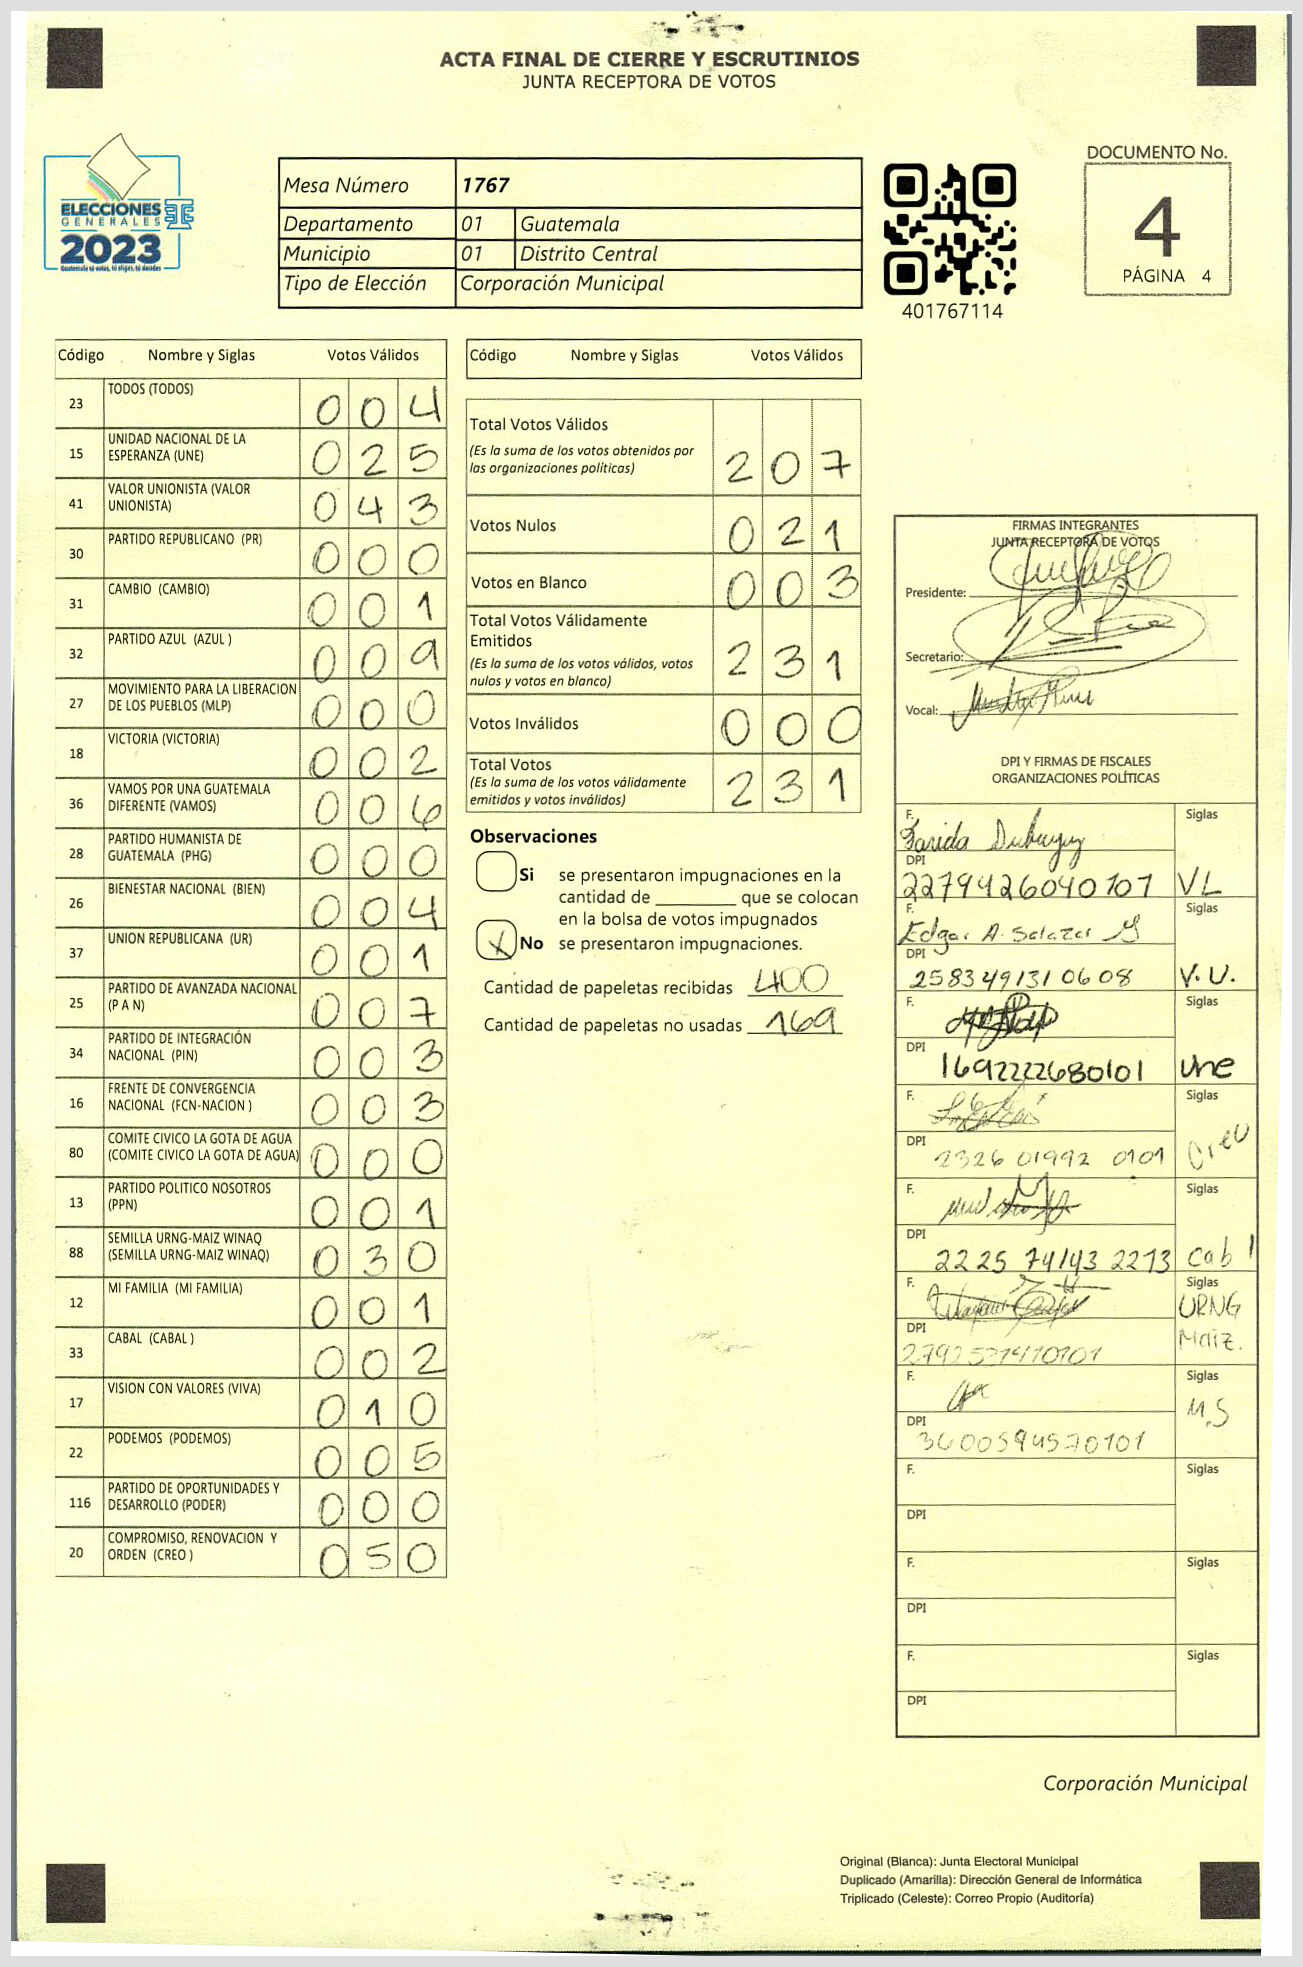 ACTA FINAL DE CIERRE Y ESCRUTINIOS
JUNTA RECEPTORA DE VOTOS
ELECCIONES
GENERALES
2023
Guatemala tú votas, tú eliges, tú decides
Mesa Número 1767
Departamento 01 Guatemala
Municipio 01 Distrito Central
Tipo de Elección Corporación Municipal
401767114
DOCUMENTO No.
4
PÁGINA 4
Código Nombre y Siglas Votos Válidos
23 TODOS (TODOS) 0 0 4
15 UNIDAD NACIONAL DE LA
ESPERANZA (UNE) 0 2 5
41 VALOR UNIONISTA (VALOR
UNIONISTA) 0 4 3
30 PARTIDO REPUBLICANO (PR) 0 0 0
31 CAMBIO (CAMBIO) 0 0 1
32 PARTIDO AZUL (AZUL ) 0 0 9
27 MOVIMIENTO PARA LA LIBERACION
DE LOS PUEBLOS (MLP) 0 0 0
18 VICTORIA (VICTORIA) 0 0 2
36 VAMOS POR UNA GUATEMALA
DIFERENTE (VAMOS) 0 0 6
28 PARTIDO HUMANISTA DE
GUATEMALA (PHG) 0 0 0
26 BIENESTAR NACIONAL (BIEN) 0 0 4
37 UNION REPUBLICANA (UR) 0 0 1
25 PARTIDO DE AVANZADA NACIONAL
(P A N) 0 0 7
34 PARTIDO DE INTEGRACIÓN
NACIONAL (PIN) 0 0 3
16 FRENTE DE CONVERGENCIA
NACIONAL (FCN-NACION ) 0 0 3
80 COMITE CIVICO LA GOTA DE AGUA
(COMITE CIVICO LA GOTA DE AGUA) 0 0 0
13 PARTIDO POLITICO NOSOTROS
(PPN) 0 0 1
88 SEMILLA URNG-MAIZ WINAQ
(SEMILLA URNG-MAIZ WINAQ) 0 3 0
12 MI FAMILIA (MI FAMILIA) 0 0 1
33 CABAL (CABAL ) 0 0 2
17 VISION CON VALORES (VIVA) 0 1 0
22 PODEMOS (PODEMOS) 0 0 5
116 PARTIDO DE OPORTUNIDADES Y
DESARROLLO (PODER) 0 0 0
20 COMPROMISO, RENOVACION Y
ORDEN (CREO ) 0 5 0
Código Nombre y Siglas Votos Válidos
Total Votos Válidos
(Es la suma de los votos obtenidos por
las organizaciones políticas) 2 0 7
Votos Nulos 0 2 1
Votos en Blanco 0 0 3
Total Votos Válidamente
Emitidos
(Es la suma de los votos válidos, votos
nulos y votos en blanco) 2 3 1
Votos Inválidos 0 0 0
Total Votos
(Es la suma de los votos válidamente
emitidos y votos inválidos) 2 3 1
Observaciones
Si se presentaron impugnaciones en la
cantidad de ________ que se colocan
en la bolsa de votos impugnados
X No se presentaron impugnaciones.
Cantidad de papeletas recibidas 400
Cantidad de papeletas no usadas 169
FIRMAS INTEGRANTES
JUNTA RECEPTORA DE VOTOS
Presidente:
Secretario:
Vocal:
DPI Y FIRMAS DE FISCALES
ORGANIZACIONES POLÍTICAS
F. Siglas
Farida
DPI
2279426040101 VL
F. Siglas
Edgar A. Salazar G
DPI
2583491310608 V.U.
F. Siglas
DPI
1692222680101 Une
F. Siglas
DPI
2326 01992 0101 Creo
F. Siglas
DPI
2225 74143 2213 Cabl
F. Siglas
URNG
DPI Maiz.
F. Siglas
M.S
DPI
3600594570101
F. Siglas
DPI
F. Siglas
DPI
F. Siglas
DPI
Corporación Municipal
Original (Blanca): Junta Electoral Municipal
Duplicado (Amarilla): Dirección General de Informática
Triplicado (Celeste): Correo Propio (Auditoría)